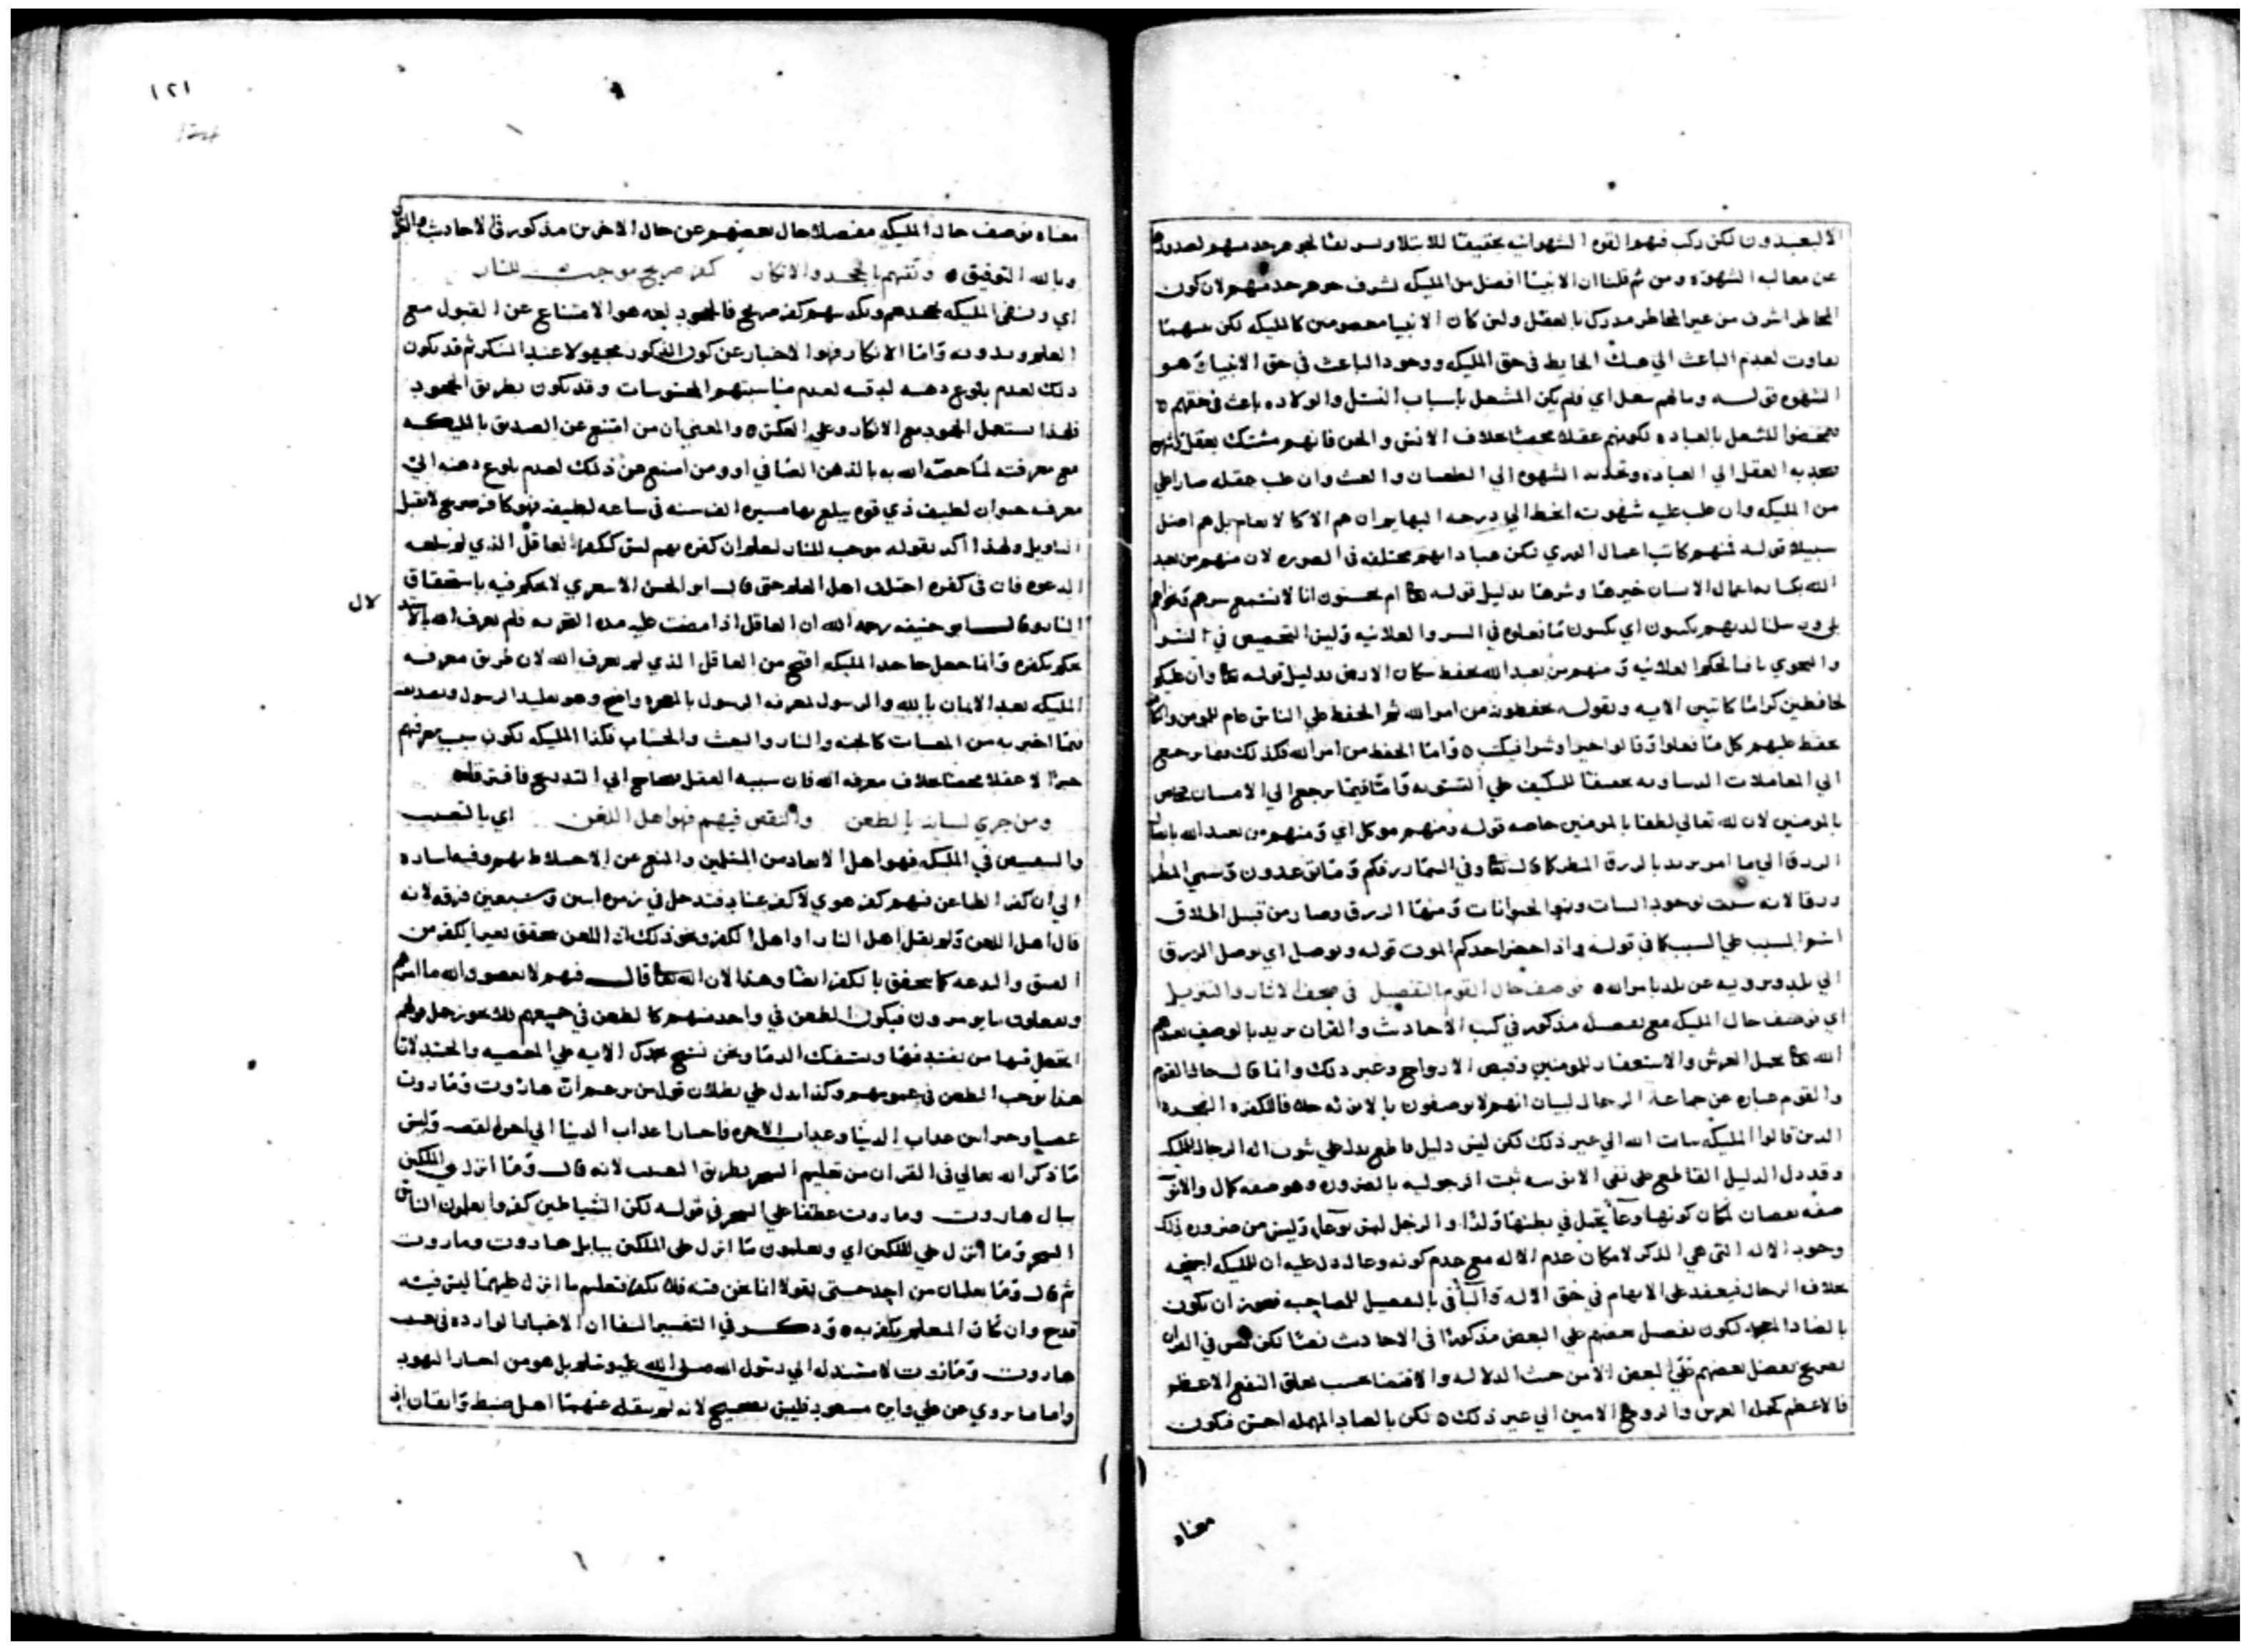 الا ليعبدون لكن ركب فيهم القوة الشهوانية تحقيقا للابتلاء
عن معالبه الشهوة ومن ثم قلنا ان الانبيا افضل من المليكه لشرف جوهر حد منهم لان كون
المخاطر اشرف من غير المخاطر مدرك بالعقل ولين كان الانبيا معصومين كالمليكه لكن بينهما
تفاوت لعدم الباعث الي في حق المليكه ووجود الباعث في حق الانبيا وهو
الشهوه قوله وما لهم شغل اي فلم يكن المشغل باسباب النسل والولاده باعث في حقهم
للشغل بالعباده لكونهم عقلا محضا بخلاف الانس والجن فانهم مشترك بعقل
العقل الي العباده الشهوه الي العصيان والعبث وان غلب عقله صار اعلي
من المليكه وان غلب عليه شهوته انحط الي درجه البهايم ان هم الا كالانعام بل هم اضل
سبيلا قوله فمنهم كاتب اعمال الوري لكن عباداتهم مختلفه في الصوره لان منهم من يعبد
الله بكتابه اعمال الانسان خيرها وشرها بدليل قوله تعا ام يحسبون انا لا نسمع سرهم ونجواهم
بلي ورسلنا لديهم يكتبون اي يكتبون ما تعلوه في السر والعلانيه وليس التخصيص في السر
والنجوي العلانيه ومنهم من يعبد الله بحفظ سكان الارض بدليل قوله تعا وان عليكم
لحافظين كراما كاتبين الايه وبقوله يحفظونه من امر الله ثم الحفظ علي الناس عام للمومن
يحفظ عليهم كل ما فعلوا وقالوا خيرا وشرا فيكتب واما الحفظ من امر الله فكذلك فيما يرجع
الي المعاملات واما فيما يرجع الي الانسان
بالمومنين لان لله تعالي لطفا بالمومنين خاصه قوله ومنهم موكل اي ومنهم من يعبد الله
الرزق الي ما امر يريد بالرزق المطر كما قال تعا وفي السما رزقكم وما توعدون وسمي المطر
رزقا لانه سبب لوجود النبات ونمو الحيوانات ومنها الرزق وصار من قبيل اطلاق
اسم المسبب علي السبب كما في قوله واذا حضر احدكم الموت قوله ويوصل اي يوصل الرزق
الي بلد ويرويه عن بلد بامر الله توصف حال القوم بالتفصيل في صحف الاثار والتنزيل
اي توصف حال المليكه مع تفصيل مذكور في كتب الاحاديث والقران يريد بالوصف تعبدهم
الله تعا بحمل العرش والاستغفار للمومنين وقبض الارواح وغير ذلك وانما قال حال القوم
والقوم عباره عن جماعه الرجال لبيان انهم لا يوصفون بالانوثه فالكفره
الذين قالوا المليكه بنات الله الي غير ذلك لكن ليس دليل قاطع يدل علي ثبوت اله الرجال للمليكه
وقد دل الدليل القاطع علي نفي الانوثه ثبت الرجوليه بالضروره وهو صفه كمال والانوثه
صفه نقصان لمكان كونها وعا يحبل في بطنها ولدا والرجل ليس بوعا وليس من ضروره ذلك
وجود الاله التي هي الذكر لامكان عدم الاله مع عدم كونه وعا دل عليه ان للمليكه اجنحه
بخلاف الرجال فيعقد علي الابهام في حق الاله والتا في بالتفصيل للمصاحبه فيجوز ان يكون
بالضاد المعجمه فيكون تفضيل بعضهم علي البعض مذكورا في الاحاديث نصا لكن ليس في القران
تصريح بفضل بعضهم علي البعض الا من حيث الدلاله والاقتضا بحسب تعلق النفع الاعظم
فالاعظم كحمله العرش والروح الامين الي غير ذلك لكن بالصاد المهمله احسن فيكون
معناه
١٢١
معناه توصف حال المليكه مفصلا حال بعضهم عن حال الاخرين مذكور في الاحاديث والقران
وبالله التوفيق ونفيهم بالجحد والانكار كفر صريح موجب للنار
اي ونفي المليكه بجحدهم وتكذيبهم كفر صريح فالجحود لغه هو الامتناع عن القبول مع
العلم وبدونه واما الانكار فهو الاخبار عن كون المذكور مجهولا عند المنكر ثم قد يكون
ذلك لعدم بلوغ ذهنه لدقته لعدم مناسبتهم المحسوسات وقد يكون بطريق الجحود
فلهذا يستعمل الجحود مع الانكار وعلي العكس والمعني ان من امتنع عن التصديق بالمليكه
مع معرفته لما خصه الله به بالذهن الصافي او من امتنع عن ذلك لعدم بلوغ ذهنه الي
معرفه حيوان لطيف ذي قوه يبلغ بها مسيره الف سنه في ساعه لطيفه فهو كافر صريح لا يقبل
التاويل ولهذا اكد بقوله موجب للنار ليعلم ان كفره بهم ليس ككفر العاقل الذي لم تبلغه
الدعوه فان في كفره اختلف اهل العلم حتي قال ابو الحسن الاشعري لا يحكم فيه باستحقاق
النار وقال ابو حنيفه رحمه الله ان العاقل اذا مضت عليه مده التجربه فلم يعرف الله بالاستد
لال
يحكم بكفره وانما جعل جاحد المليكه اقبح من العاقل الذي لم يعرف الله لان طريق معرفه
المليكه بعد الايمان بالله والرسول لمعرفه الرسول بالمعجزه واضح وهو تقليد الرسول وتصديقه
فيما اخبر به من المغيبات كالجنه والنار والبعث والحساب فكذا المليكه يكون سبب معرفتهم
خبرا لا عقلا محضا بخلاف معرفه الله فان سببه العقل يحتاج الي التدريج فافترقا
ومن جري لسانه بالطعن والنقص فيهم فهو اهل اللعن اي بالعيب
والتنقيص في المليكه فهو اهل الابعاد من المسلمين والمنع عن الاختلاط بهم وفيه اشاره
الي ان كفر الطاعن فيهم كفر هوي لا كفر عناد فدخل في زمره اثنين وسبعين فرقه لانه
قال اهل اللعن ولم يقل اهل النار او اهل الكفر ونحو ذلك اذ اللعن يتحقق بغير الكفر من
الفسق والبدعه كما يتحقق بالكفر ايضا وهذا لان الله تعا قال فيهم لا يعصون الله ما امرهم
ويفعلون ما يومرون فيكون الطعن في واحد منهم كالطعن في جميعهم فلا يجوز حمل قولهم
اتجعل فيها من يفسد فيها ويسفك الدما ونحن نسبح بحمدك الايه علي المعصيه والحسد لان
هذا يوجب الطعن في عمومهم وكذا يدل علي بطلان قول من زعم ان هاروت وماروت
عصيا وخيرا بين عذاب الدنيا وعذاب الاخره فاختارا عذاب الدنيا الي اخر القصه وليس
ما ذكر الله تعالي في القران من تعليم السحر بطريق العيب لانه قال وما انزل علي الملكين
ببابل هاروت وماروت عطفا علي السحر في قوله لكن الشياطين كفروا يعلمون الناس
السحر وما انزل علي الملكين اي ويعلمون ما انزل علي الملكين ببابل هاروت وماروت
ثم قال وما يعلمان من احد حتي يقولا انما نحن فتنه فلا تكفر فتعليم ما انزل عليهما ليس فيه
قدح وان كان المعلم يكفر به وذكر في التفسير ايضا ان الاخبار الوارده في عيب
هاروت وماروت لا مستند له الي رسول الله صلي الله عليه وسلم بل هو من اخبار اليهود
واما ما روي عن علي وابن مسعود فليس بصحيح لانه لم ينقله عنهما اهل ضبط واتقان